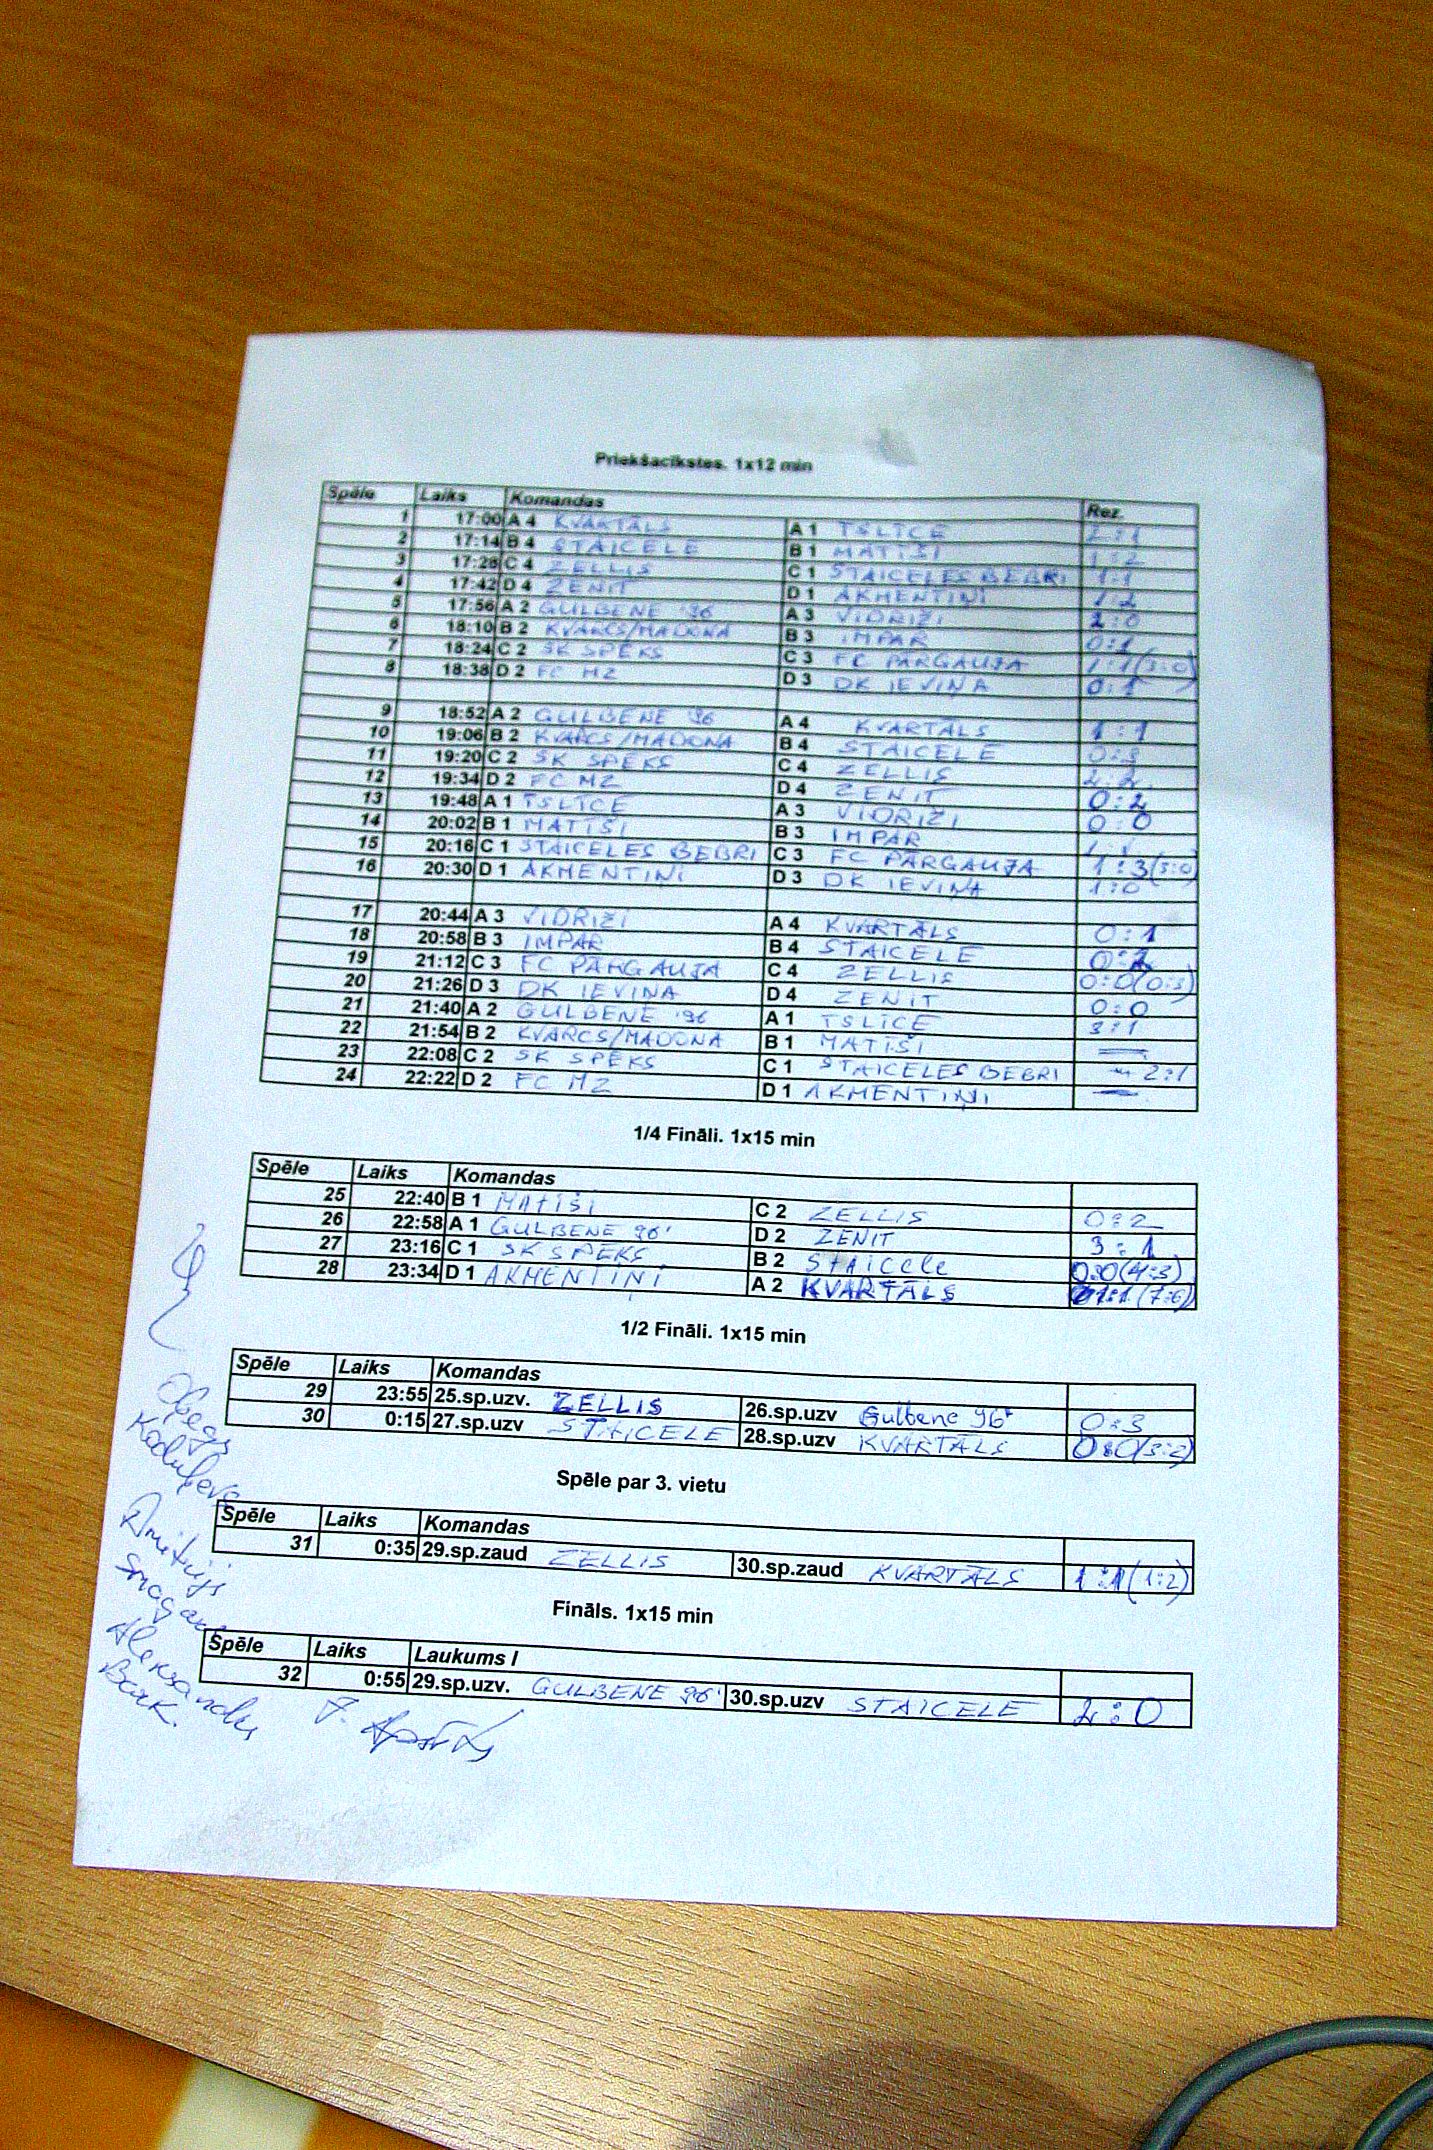 Priekšacīkstes. 1x12 min
Spēle Laiks Komandas Rez.
1 17:00 A 4 KVARTĀLS A 1 TSLĪCE 2:1
2 17:14 B 4 STAICELE B 1 MATĪŠI 1:2
3 17:28 C 4 ZELLIS C 1 STAICELES BEBRI 1:1
4 17:42 D 4 ZENIT D 1 AKMENTIŅI 1:2
5 17:56 A 2 GULBENE '96 A 3 VIDRIŽI 2:0
6 18:10 B 2 KVARCS/MADONA B 3 IMPAR 0:1
7 18:24 C 2 SK SPĒKS C 3 FC PĀRGAUJA 1:1(3:0)
8 18:38 D 2 FC MZ D 3 DK IEVIŅA 0:1
9 18:52 A 2 GULBENE '96 A 4 KVARTĀLS 1:1
10 19:06 B 2 KVARCS/MADONA B 4 STAICELE 0:3
11 19:20 C 2 SK SPĒKS C 4 ZELLIS 2:2
12 19:34 D 2 FC MZ D 4 ZENIT 0:2
13 19:48 A 1 TSLĪCE A 3 VIDRIŽI 0:0
14 20:02 B 1 MATĪŠI B 3 IMPAR 1:1
15 20:16 C 1 STAICELES BEBRI C 3 FC PĀRGAUJA 1:3(3:0)
16 20:30 D 1 AKMENTIŅI D 3 DK IEVIŅA 1:0
17 20:44 A 3 VIDRIŽI A 4 KVARTĀLS 0:1
18 20:58 B 3 IMPAR B 4 STAICELE
19 21:12 C 3 FC PĀRGAUJA C 4 ZELLIS 0:0(0:3)
20 21:26 D 3 DK IEVIŅA D 4 ZENIT 0:0
21 21:40 A 2 GULBENE '96 A 1 TSLĪCE 3:1
22 21:54 B 2 KVARCS/MADONA B 1 MATĪŠI —
23 22:08 C 2 SK SPĒKS C 1 STAICELES BEBRI 2:1
24 22:22 D 2 FC MZ D 1 AKMENTIŅI —
1/4 Fināli. 1x15 min
Spēle Laiks Komandas
25 22:40 B 1 MATĪŠI C 2 ZELLIS 0:2
26 22:58 A 1 GULBENE 96' D 2 ZENIT 3:1
27 23:16 C 1 SK SPĒKS B 2 Staicele 0:0(4:3)
28 23:34 D 1 AKMENTIŅI A 2 KVARTĀLS 1:1(7:6)
1/2 Fināli. 1x15 min
Spēle Laiks Komandas
29 23:55 25.sp.uzv. ZELLIS 26.sp.uzv Gulbene 96' 0:3
30 0:15 27.sp.uzv STAICELE 28.sp.uzv KVARTĀLS 0:0(3:2)
Spēle par 3. vietu
Spēle Laiks Komandas
31 0:35 29.sp.zaud ZELLIS 30.sp.zaud KVARTĀLS 1:1(1:2)
Fināls. 1x15 min
Spēle Laiks Laukums I
32 0:55 29.sp.uzv. GULBENE 96' 30.sp.uzv STAICELE 2:0
Dmitrijs